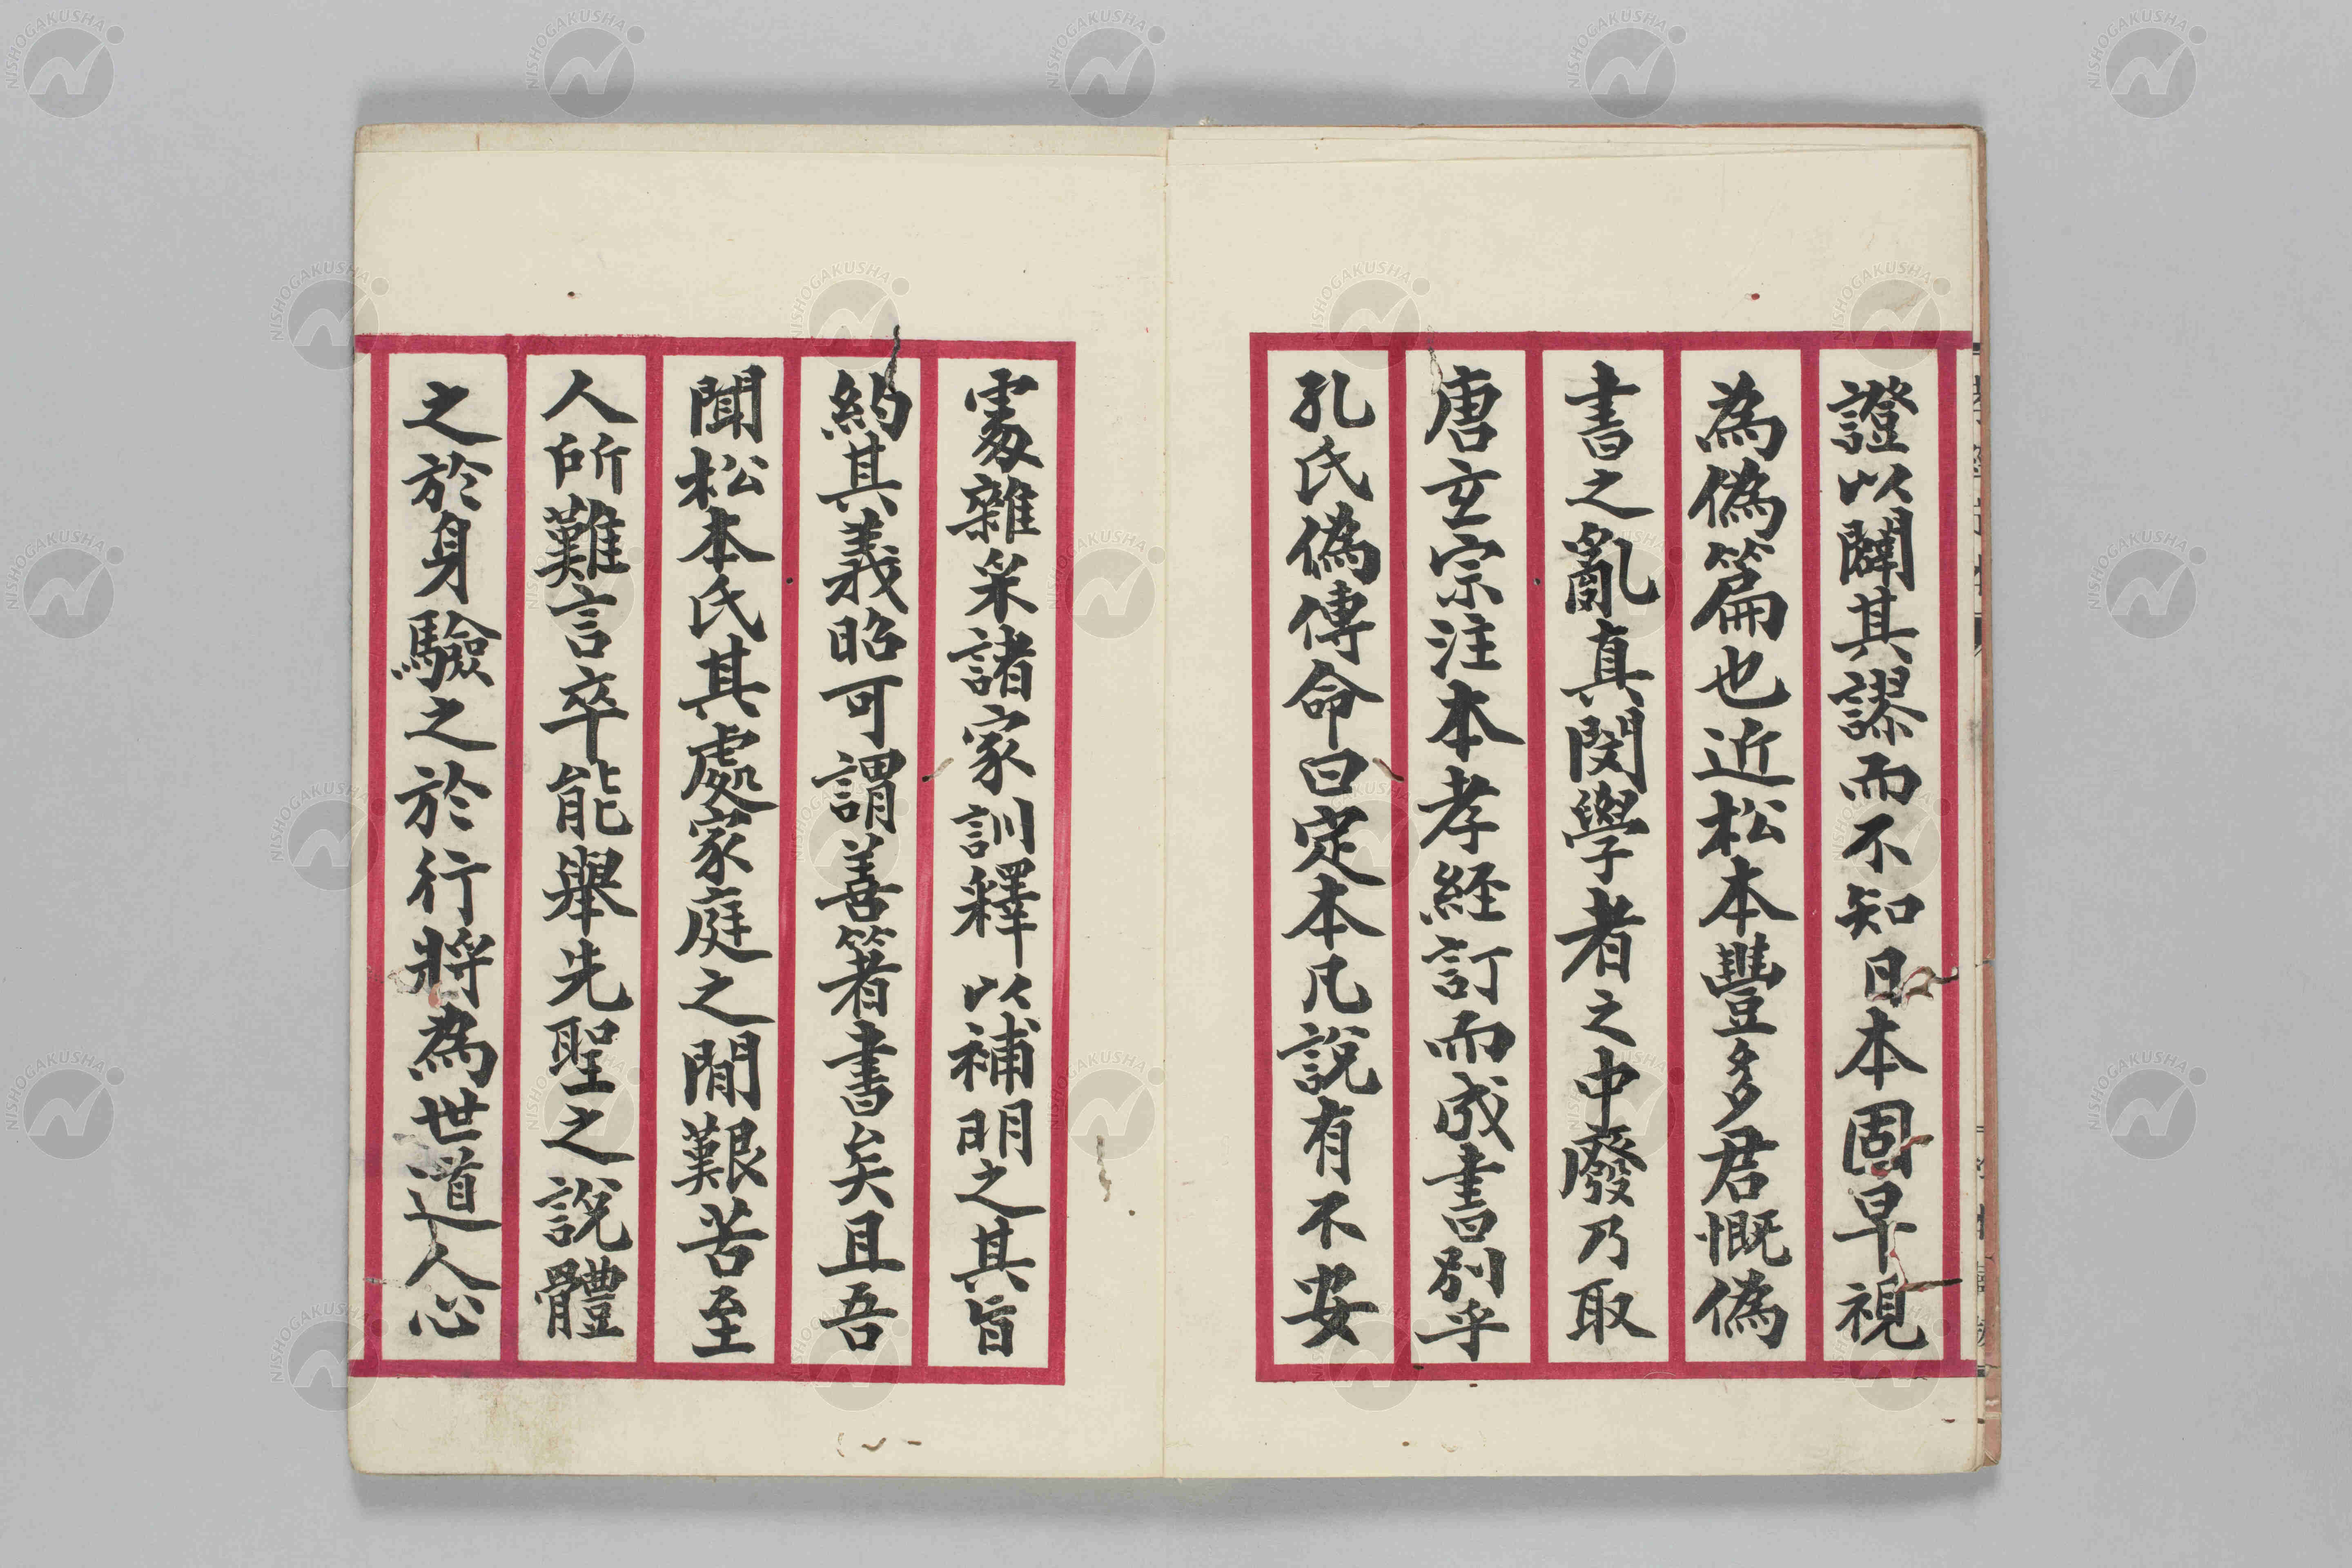 證以闢其謬而不知日本固早視
為偽篇也近松本豐多君慨偽
書之亂真閔學者之中廢乃取
唐玄宗注本孝経訂而成書別乎
孔氏偽傳命曰定本凡說有不安
䖏雜采諸家訓釋以補明之其旨
約其義昭可謂善著書矣且吾
聞松本氏其處家庭之閒艱苦至
人所難言卒能舉先聖之說體
之於身驗之於行將為世道人心
NISHOGAKUSHA